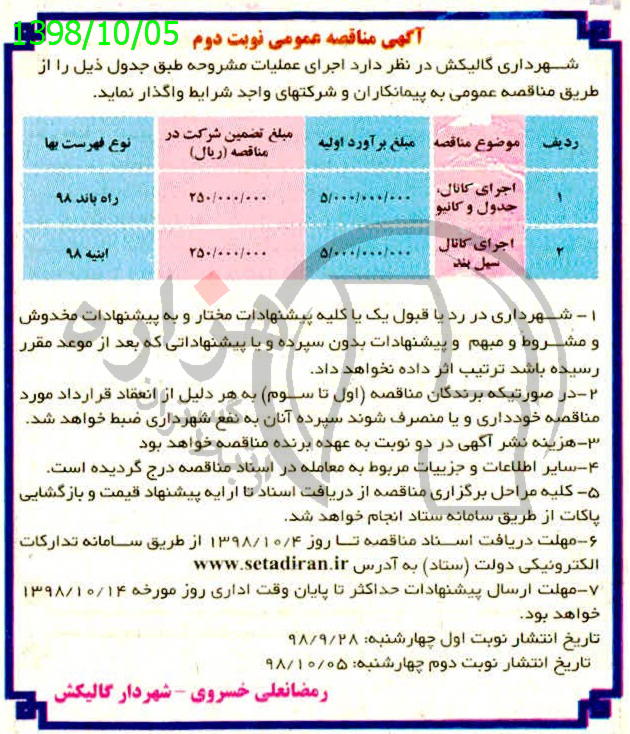 1398/10/05
آگهی مناقصه عمومی نوبت دوم
شـــهرداری گالیکش در نظر دارد اجرای عملیات مشروحه طبق جدول ذیل را از
طریق مناقصه عمومی به پیمانکاران و شرکتهای واجد شرایط واگذار نماید.
ردیف موضوع مناقصه مبلغ برآورد اولیه مبلغ تضمین شرکت در مناقصه (ریال) نوع فهرست بها
۱ اجرای کانال، جدول و کانیو ۵/۰۰۰/۰۰۰/۰۰۰ ۲۵۰/۰۰۰/۰۰۰ راه باند ۹۸
۲ اجرای کانال سیل بند ۵/۰۰۰/۰۰۰/۰۰۰ ۲۵۰/۰۰۰/۰۰۰ ابنیه ۹۸
۱- شـــهرداری در رد یا قبول یک یا کلیه پیشنهادات مختار و به پیشنهادات مخدوش
و مشـــروط و مبهم و پیشنهادات بدون سپرده و یا پیشنهاداتی که بعد از موعد مقرر
رسیده باشد ترتیب اثر داده نخواهد داد.
۲-در صورتیکه برندگان مناقصه (اول تا ســـوم) به هر دلیل از انعقاد قرارداد مورد
مناقصه خودداری و یا منصرف شوند سپرده آنان به نفع شهرداری ضبط خواهد شد.
۳-هزینه نشر آگهی در دو نوبت به عهده برنده مناقصه خواهد بود
۴-سایر اطلاعات و جزییات مربوط به معامله در اسناد مناقصه درج گردیده است.
۵- کلیه مراحل برگزاری مناقصه از دریافت اسناد تا ارایه پیشنهاد قیمت و بازگشایی
پاکات از طریق سامانه ستاد انجام خواهد شد.
۶-مهلت دریافت اســـناد مناقصه تـــا روز ۱۳۹۸/۱۰/۴ از طریق ســـامانه تدارکات
الکترونیکی دولت (ستاد) به آدرس www.setadiran.ir
۷-مهلت ارسال پیشنهادات حداکثر تا پایان وقت اداری روز مورخه ۱۳۹۸/۱۰/۱۴
خواهد بود.
تاریخ انتشار نوبت اول چهارشنبه: ۹۸/۹/۲۸
تاریخ انتشار نوبت دوم چهارشنبه: ۹۸/۱۰/۰۵
رمضانعلی خسروی - شهردار گالیکش
هزاره